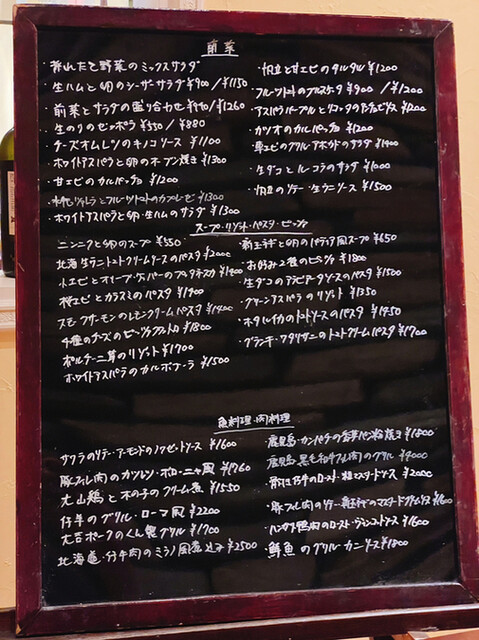 前菜
採れたて野菜のミックスサラダ
生ハムと卵のシーザーサラダ ¥900 / ¥1150
前菜とサラダの盛り合わせ ¥990 / ¥1260
生のりのゼッポラ ¥550 / ¥880
チーズオムレツのキノコソース ¥1100
ホワイトアスパラと卵のオーブン焼き ¥1300
甘エビのカルパッチョ ¥1200
フルーツトマトのカプレーゼ ¥1300
ホワイトアスパラと卵・生ハムのサラダ ¥1300
帆立と甘エビのタルタル ¥1200
フルーツトマトのブルスケッタ ¥900 / ¥1200
アスパラパープルとリコッタの ¥1200
カツオのカルパッチョ ¥1200
車エビのグリル アボカドのサラダ ¥1900
生ダコとルーコラのサラダ ¥1000
帆立のソテー・生ウニソース ¥1500
スープ・リゾット・パスタ・ピッツァ
ニンニクと卵のスープ ¥550
北海生ウニトマトクリームソースのパスタ ¥2000
小エビとオリーブ・ケッパーのプッタネスカ ¥1400
桜エビとカラスミのパスタ ¥1900
スモークサーモンのレモンクリームパスタ ¥1400
4種のチーズのピッツァ ¥1800
ポルチーニ茸のリゾット ¥1700
ホワイトアスパラのカルボナーラ ¥1500
新玉ネギと卵のパヴィア風スープ ¥650
お好み2種のピッツァ ¥1800
生ダコのアラビアータソースのパスタ ¥1500
グリーンアスパラのリゾット ¥1350
ホタルイカのトマトソースのパスタ ¥1450
グランキ・ワタリガニのトマトクリームパスタ ¥1700
魚料理・肉料理
サワラのソテー・アーモンドのノワゼットソース ¥1600
豚フィレ肉のカツレツ・ボローニャ風 ¥1760
大山鶏と木の子のクリーム煮 ¥1550
仔羊のグリル・ローマ風 ¥2200
大百ポークのくん製グリル ¥1700
北海道・仔牛肉のミラノ風煮込み ¥2500
鹿児島・カンパチの香草パン粉焼き ¥1800
鹿児島・黒毛和牛フィレ肉のグリル ¥4000
骨付き仔牛のロースト・粒マスタードソース ¥2000
豚フィレ肉のソテー・新玉ネギのマスタードクリームソース ¥1600
ハンガリー鴨肉のロースト・ヴィンコットソース ¥1600
鮮魚のグリル・カニソース ¥1800